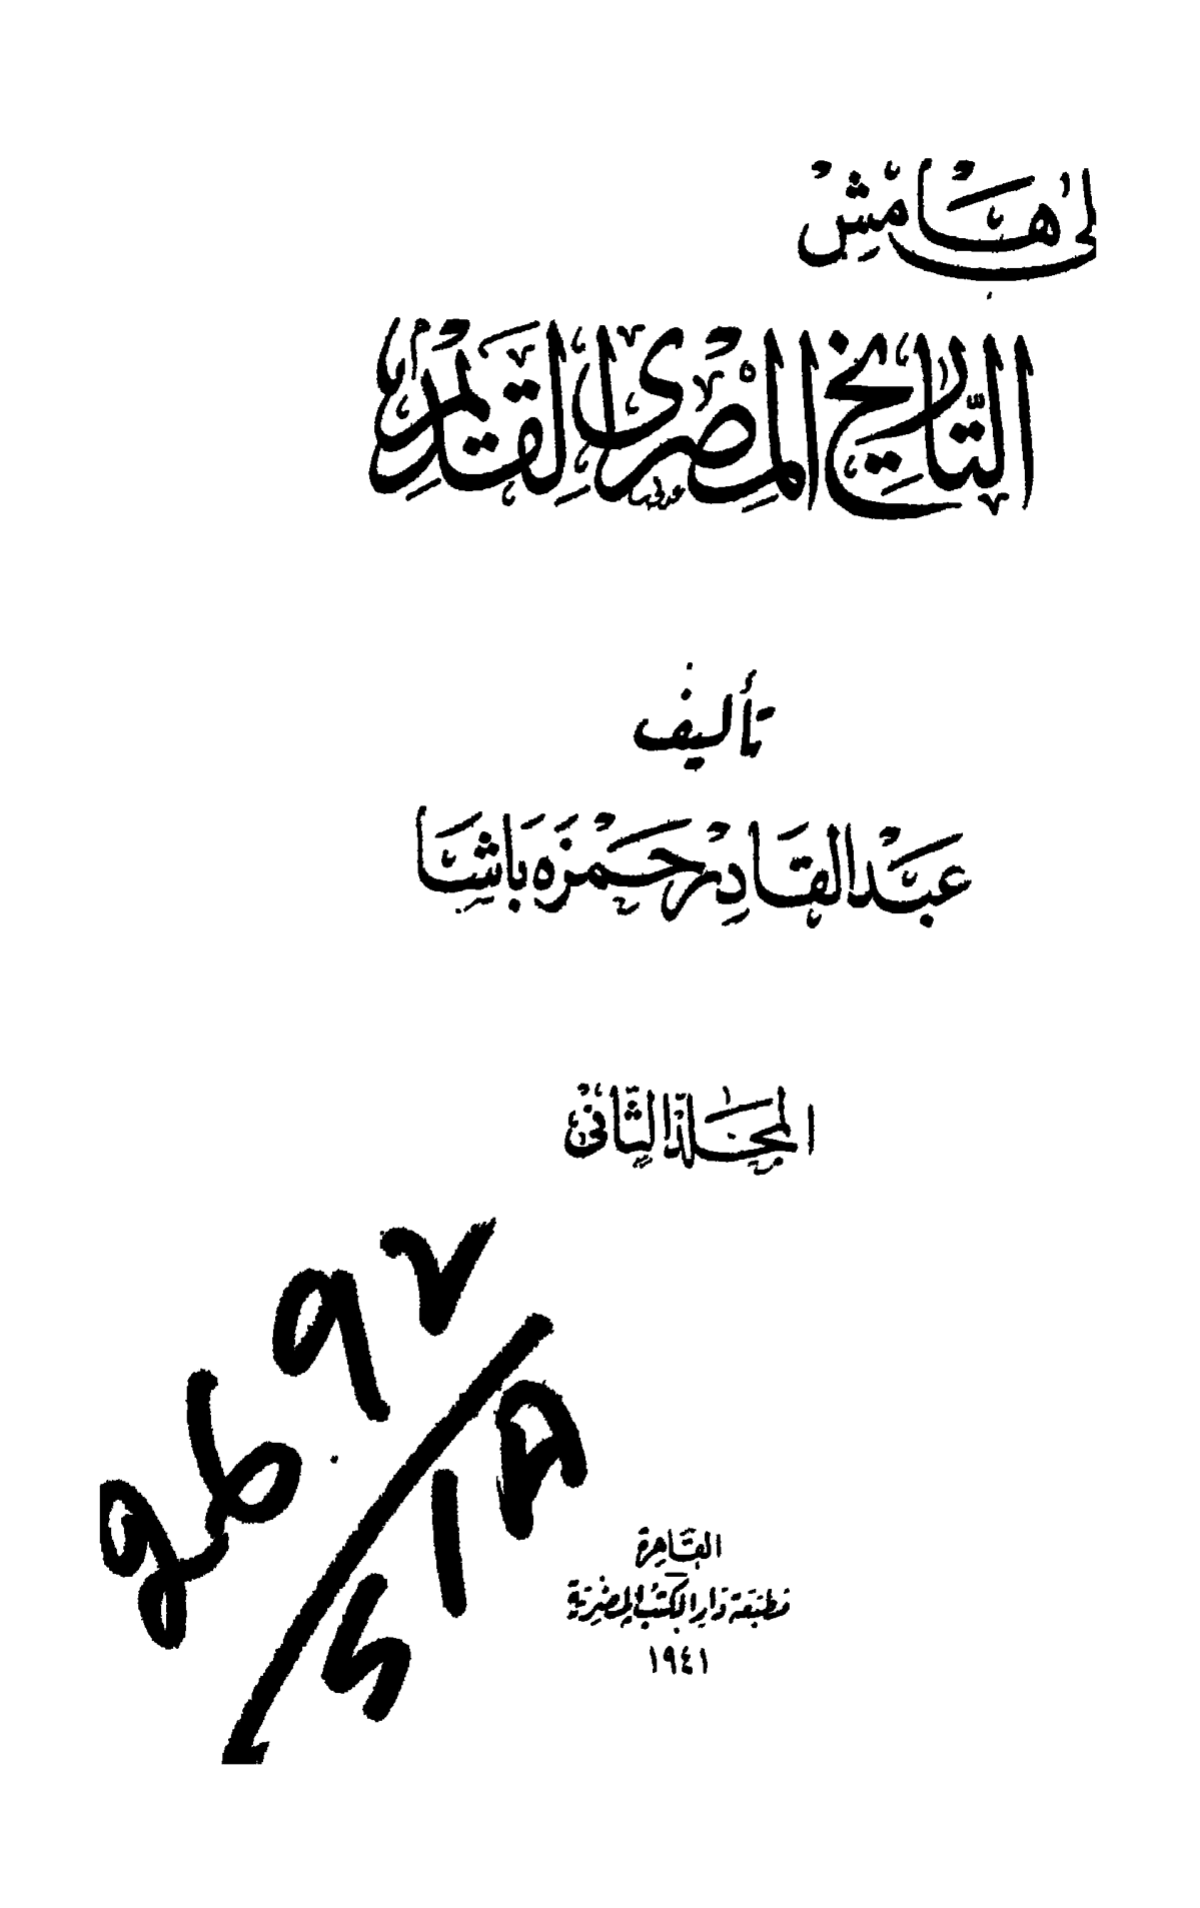 لى هَامْش
التَّاريخ المِصْرى القَدِيْم
تأليف
عَبْد القَادِر حَمْزَه بَاشَا
المجَلد الثَّانى
القَاهِرة
مَطبَعَة دَارِ الكتبُ المِصْرِيَة
١٩٤١